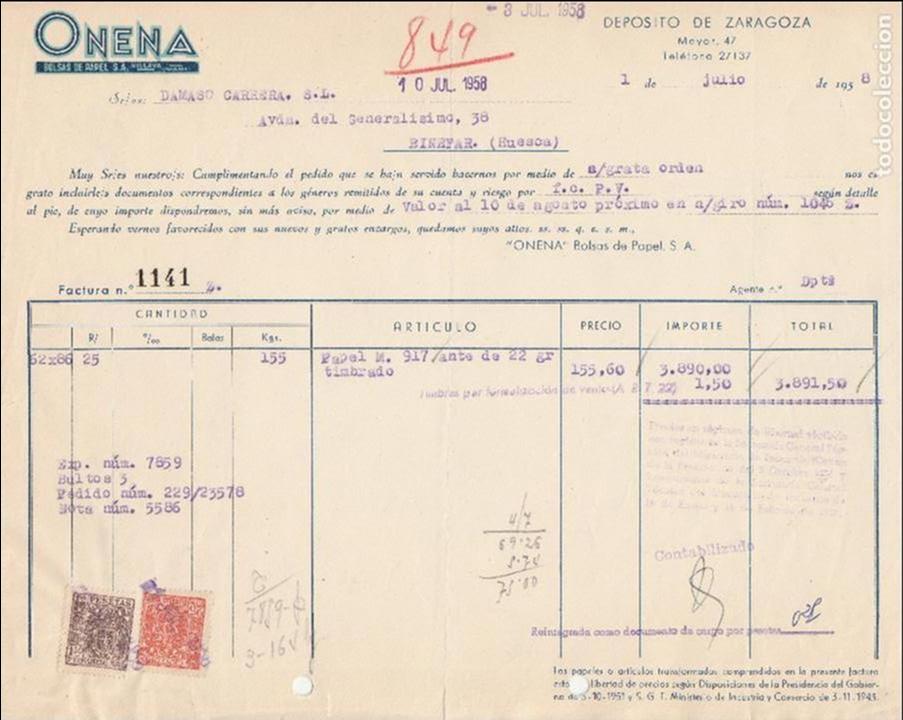 ONENA
BOLSAS DE PAPEL S.A. VILLAVA
- 3 JUL. 1958
849
10 JUL. 1958
DEPOSITO DE ZARAGOZA
Mayor, 47
Teléfono 27137
1 de julio de 1958
todocoleccion
Sr/es: DAMASO CARRERA. S.L.
Avda. del Generalisimo, 38
BINEFAR. (Huesca)
Muy Sr/es nuestro/s: Cumplimentando el pedido que se han servido hacernos por medio de s/grata orden nos es
grato incluirle/s documentos correspondientes a los géneros remitidos de su cuenta y riesgo por f.c. p.v. según detalle
al pie, de cuyo importe dispondremos, sin más aviso, por medio de Valor al 10 de agosto próximo en n/giro núm. 1045 Z.
Esperando vernos favorecidos con sus nuevos y gratos encargos, quedamos suyos attos. ss. ss. q. e. s. m.,
"ONENA" Bolsas de Papel, S. A.
Factura n.º 1141 Z.
Agente n.º Dptº
CANTIDAD ARTICULO PRECIO IMPORTE TOTAL
R/ º/oo Bolsas Kgs.
62x86 25 155 Papel M. 917 ante de 22 gr
timbrado 155,60 3.890,00
Timbres por formalización de venta (A 1,50 3.891,50
Exp. núm. 7859
Bultos 3
Pedido núm. 229/23578
Nota núm. 5586
4/7
69.26
5.74
75.00
Contabilizado
PESETAS
Reintegrada como documento de cargo por pesetas
Los papeles o artículos transformados comprendidos en la presente factura
libertad de precios según Disposiciones de la Presidencia del Gobier-
no de 5-10-1951 y S. G. T. Ministerio de Industria y Comercio de 3-11-1943.